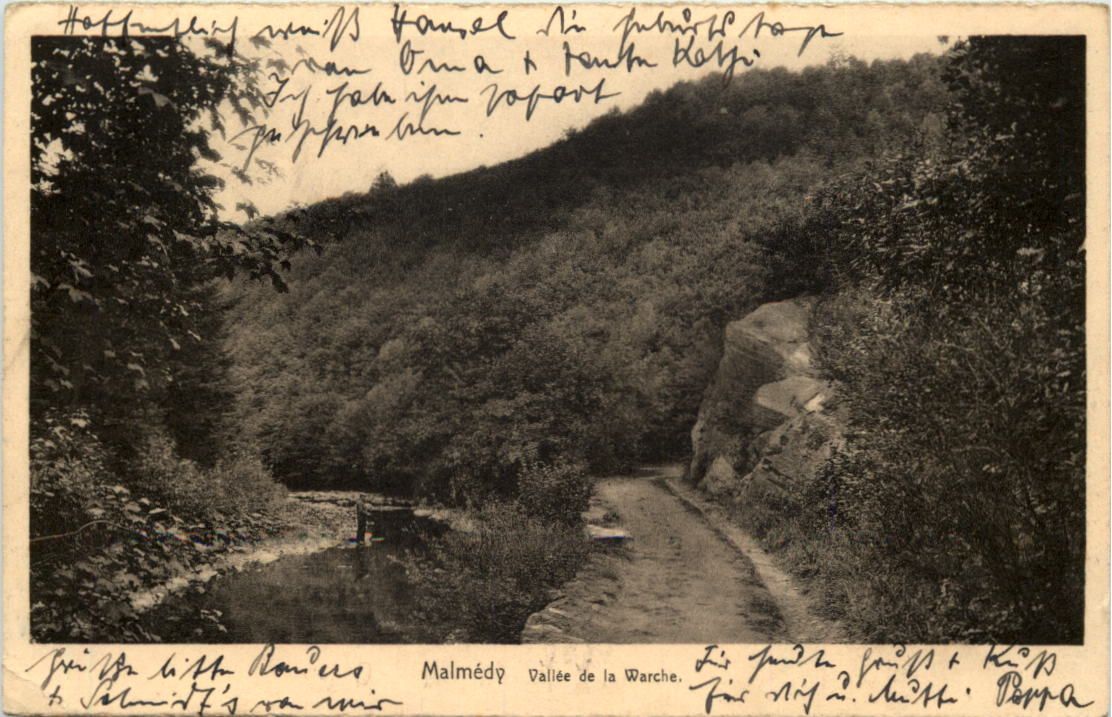 Hoffentlich weiß Hansel die Geburtstage
von Oma + Tante Kathi
Ich habe ihm sofort
geschrieben.
Grüße bitte Bauers
+ Schmidt's von mir
Malmédy Vallée de la Warche.
Für heute Gruß + Kuß
für dich u. Mutti. Pappa